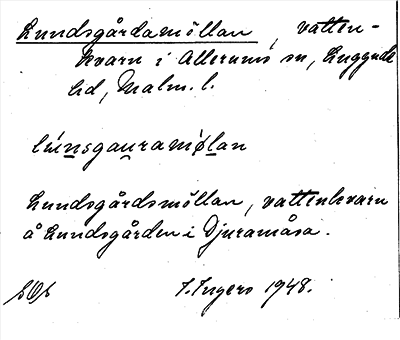 Lundsgårdamöllan, vatten-
kvarn i Allerums sn, Luggude
hd, Malm. l.
lúnsgauramø̀lan
Lundsgårdsmöllan, vattenkvarn
å Lundsgården i Djuramåsa.
I. Ingers 1948.